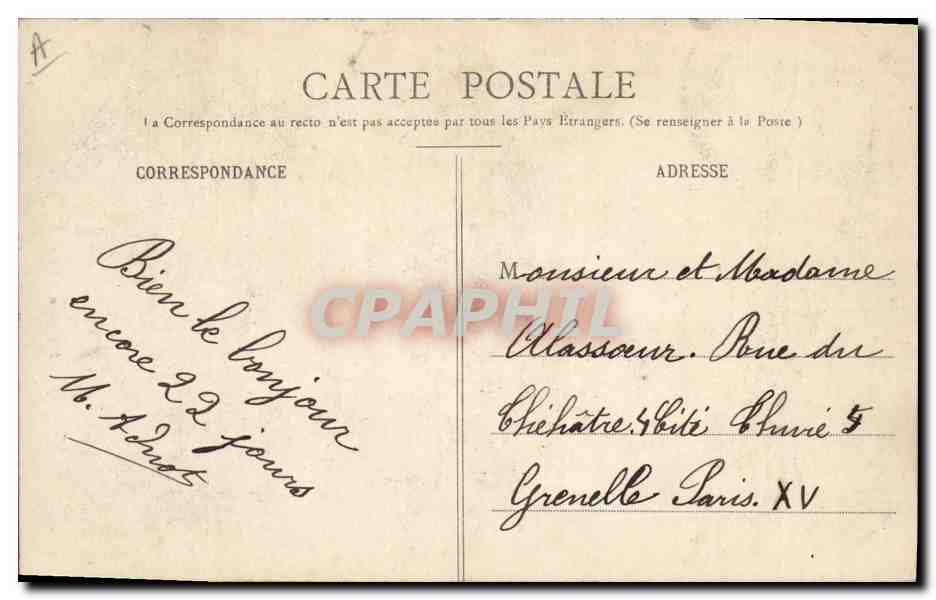 A
CARTE POSTALE
La Correspondance au recto n'est pas acceptée par tous les Pays Etrangers. (Se renseigner à la Poste)
CORRESPONDANCE
Bien le bonjour
encore 22 jours
M. Adnot
ADRESSE
Monsieur et Madame
Alassœur. Rue du
Théhâtre. 4 Cité Thuvié 5
Grenelle Paris. XV
CPAPHIL